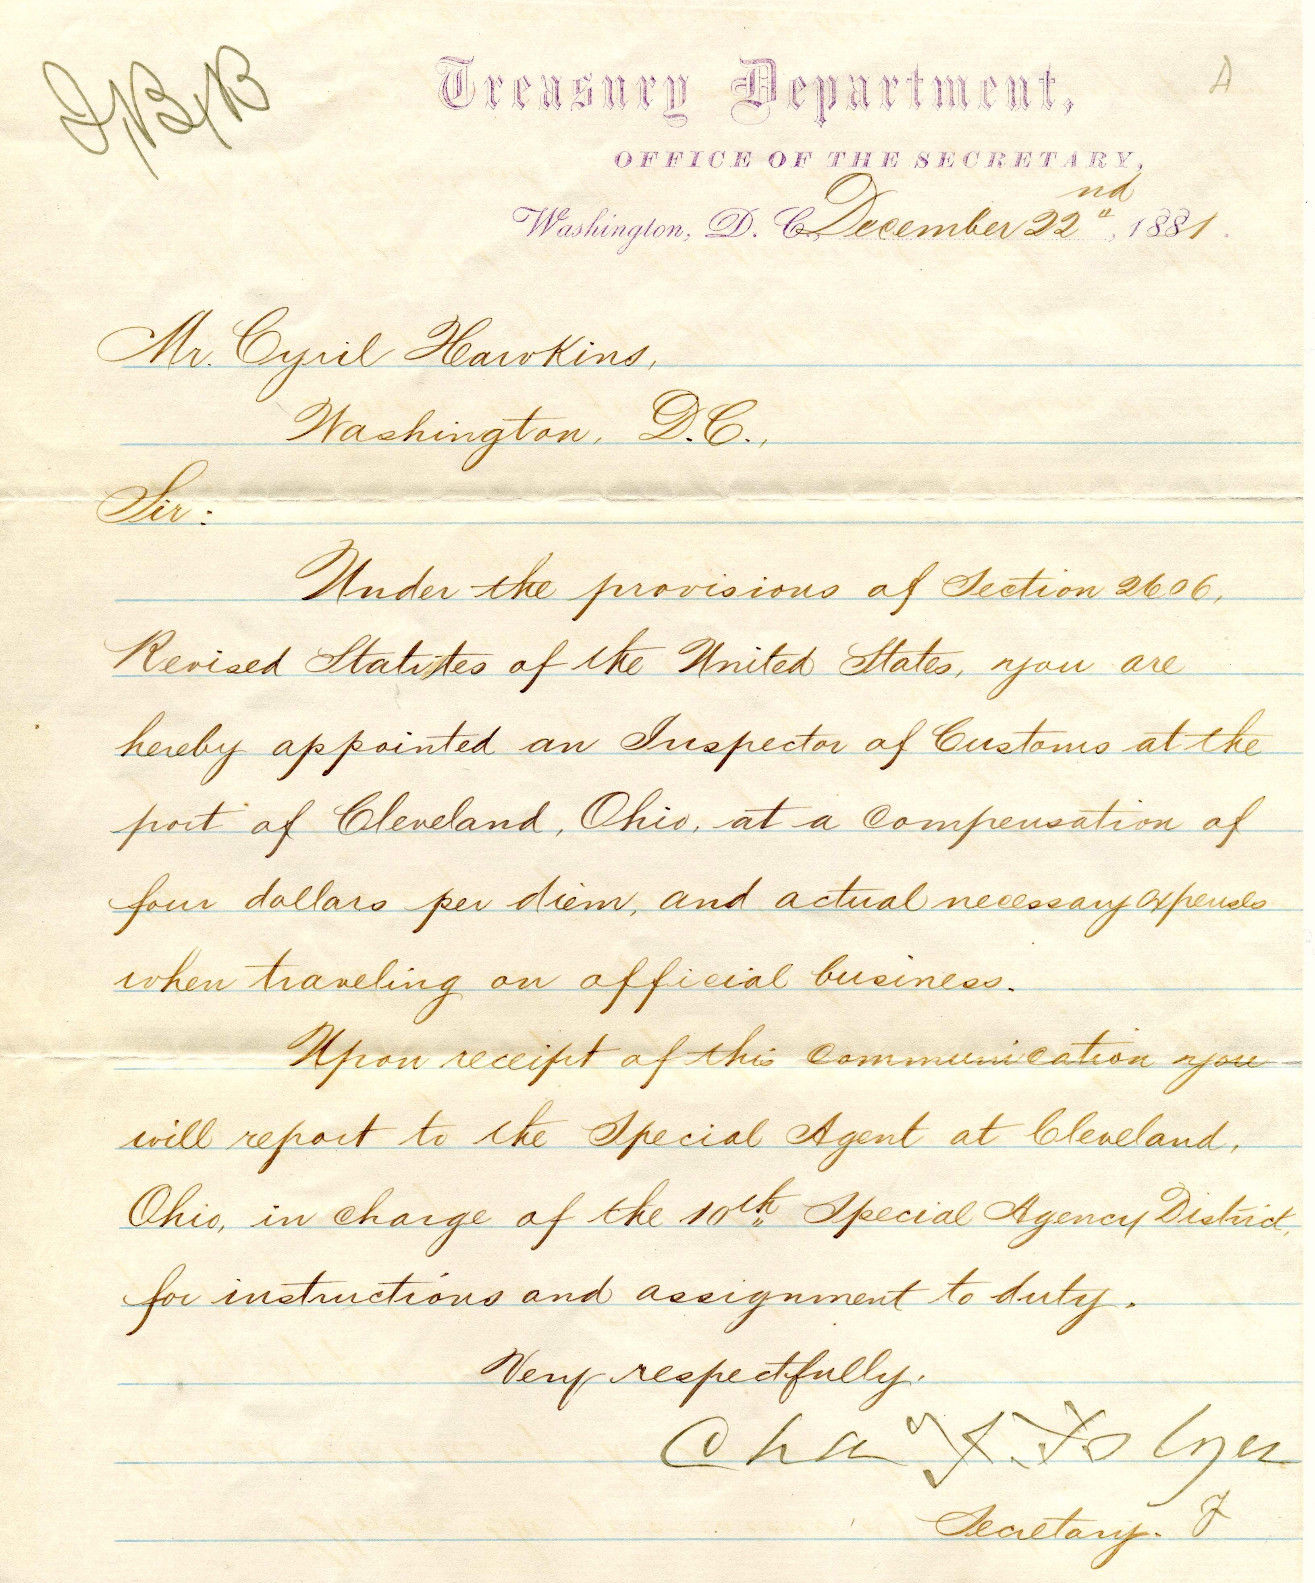 Treasury Department,
A
OFFICE OF THE SECRETARY,
Washington, D. C., December 22nd, 1881.
Mr. Cyril Hawkins,
Washington, D.C.,
Sir:
Under the provisions of Section 2606,
Revised Statutes of the United States, you are
hereby appointed an Inspector of Customs at the
port of Cleveland, Ohio, at a compensation of
four dollars per diem, and actual necessary expenses
when traveling on official business.
Upon receipt of this communication you
will report to the Special Agent at Cleveland,
Ohio, in charge of the 10th Special Agency District,
for instructions and assignment to duty.
Very respectfully,
Chas J. Folger
Secretary.